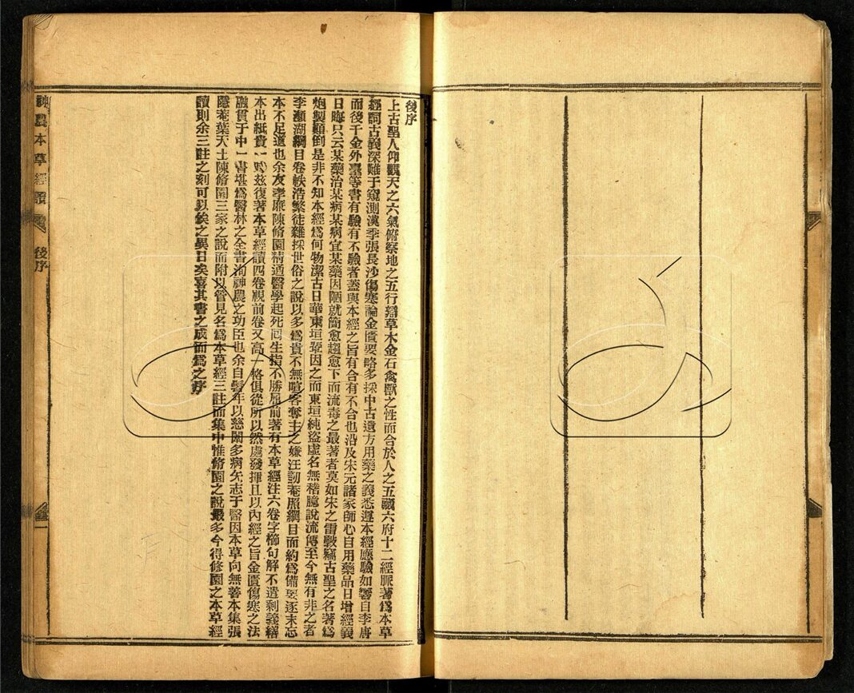 後序
上古聖人仰觀天之六氣俯察地之五行辯草木金石禽獸之性而合於人之五臟六府十二經脈著爲本草
經詞古義深難于窺測漢季張長沙傷寒論金匱要略多採中古遺方用藥之義悉遵本經應驗如響自李唐
而後千金外臺等書有驗有不驗者蓋與本經之旨有合有不合也沿及宋元諸家師心自用藥品日增經義
日晦只云某藥治某病某病宜某藥因陋就簡愈趨愈下而流毒之最著者莫如宋之雷斅竊古聖之名著爲
炮製顛倒是非不知本經爲何物潔古日華東垣輩因之而東垣純盜虛名無稽臆說流傳至今無有非之者
李瀕湖綱目卷帙浩繁徒雜採世俗之說以多爲貴不無喧客奪主之嫌汪訒菴照綱目而約爲備要逐末忘
本不足道也余友孝廉陳修園精通醫學起死回生指不勝屈前著有本草經注六卷字櫛句解不遺剩義繕
本出紙貴一時茲復著本草經讀四卷視前卷又高一格俱從所以然處發揮且以內經之旨金匱傷寒之法
融貫于中一書堪爲醫林之全書洵神農之功臣也余自髫年以慈闈多病矢志于醫因本草向無善本集張
隱菴葉天士陳脩園三家之說而附以管見名爲本草經三註而集中惟脩園之說最多今得修園之本草經
讀則余三註之刻可以俟之異日矣喜其書之成而爲之序
神農本草經讀
後序